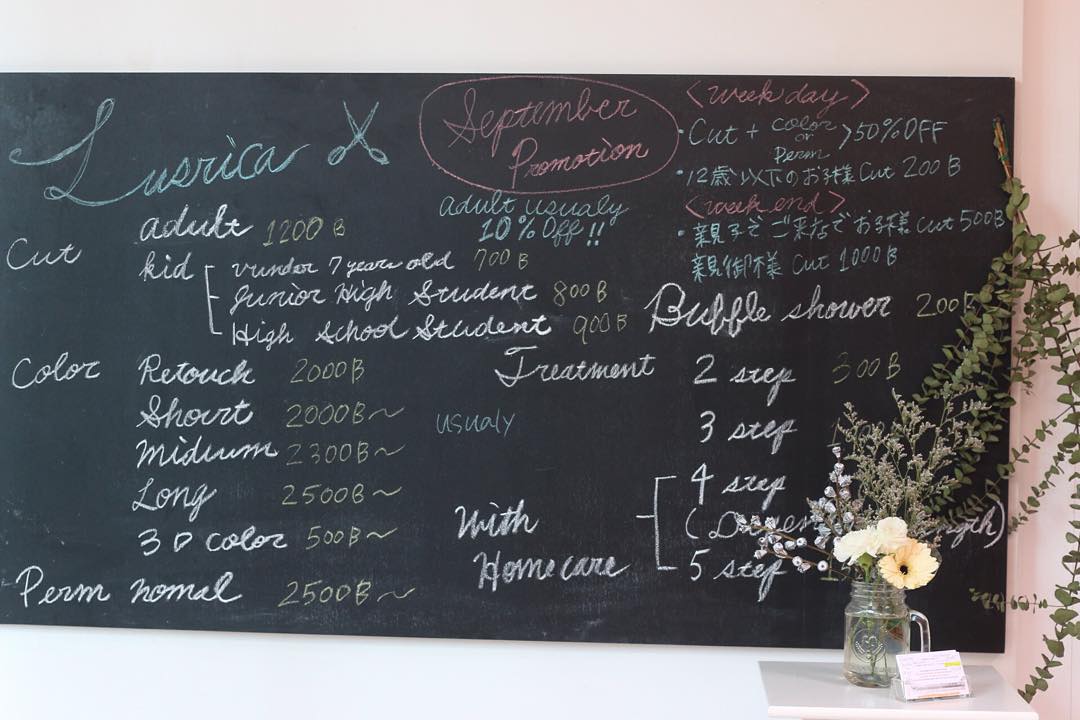 Lusrica
September
Promotion
adult usualy
10% Off!!
<week day>
・Cut + color or Perm >50%OFF
・12歳以下のお子様 Cut 200B
<week end>
・親子でご来店でお子様 Cut 500B
親御様 Cut 1000B
Cut adult 1200B
kid under 7 years old 700B
Junior High Student 800B
High School Student 900B
Bubble shower 200
Color Retouch 2000B
Short 2000B~
Midium 2300B~
Long 2500B~
3D color 500B~
Perm nomal 2500B~
usualy
Treatment 2 step 300B
3 step
With Homecare
4 step
5 step